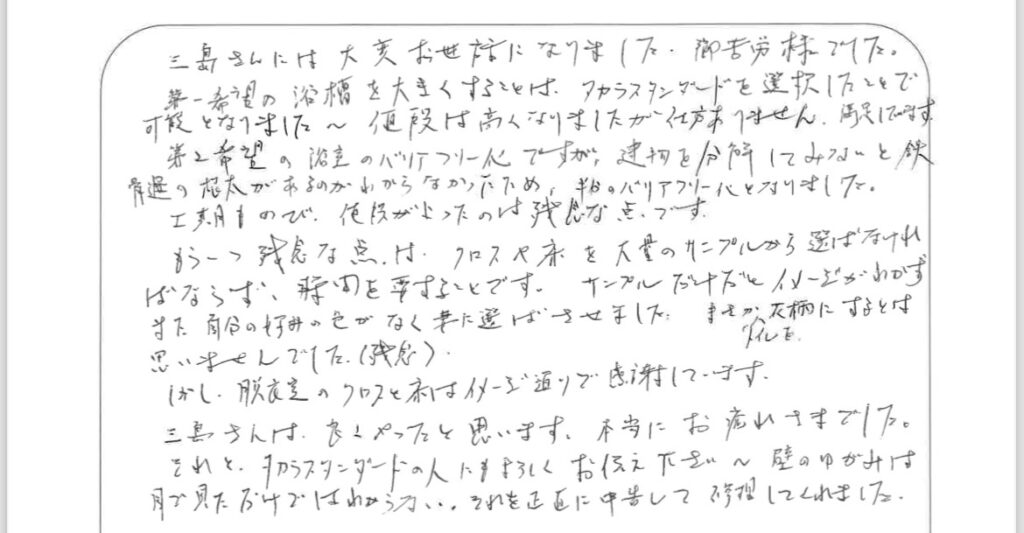 三島さんには大変お世話になりました。御苦労様でした。
第一希望の浴槽を大きくすることは、タカラスタンダードを選択したことで
可能となりました〜 値段は高くなりましたが仕方ありません。満足しています
第2希望の浴室のバリアフリー化ですが、建物を分解してみないと鉄
骨造の根太があるのがわからなかったため、半分のバリアフリー化となりました。
工期ものび、値段が上ったのは残念な点です。
もう一つ残念な点は、クロスや床を大量のサンプルから選ばなけれ
ばならず、時間を要することです。サンプルだけだとイメージがわかず
また自分の好みの色がなく妻に選ばさせました。まさか灰柄にするとは
タイルを
思いませんでした。(残念)。
しかし、脱衣室のクロスと床はイメージ通りで感謝しています。
三島さんは、良くやったと思います。本当にお疲れさまでした。
それと、タカラスタンダードの人にもよろしくお伝え下さい〜 壁のゆがみは
目で見ただけではわからない。それを正直に申告して修理してくれました。